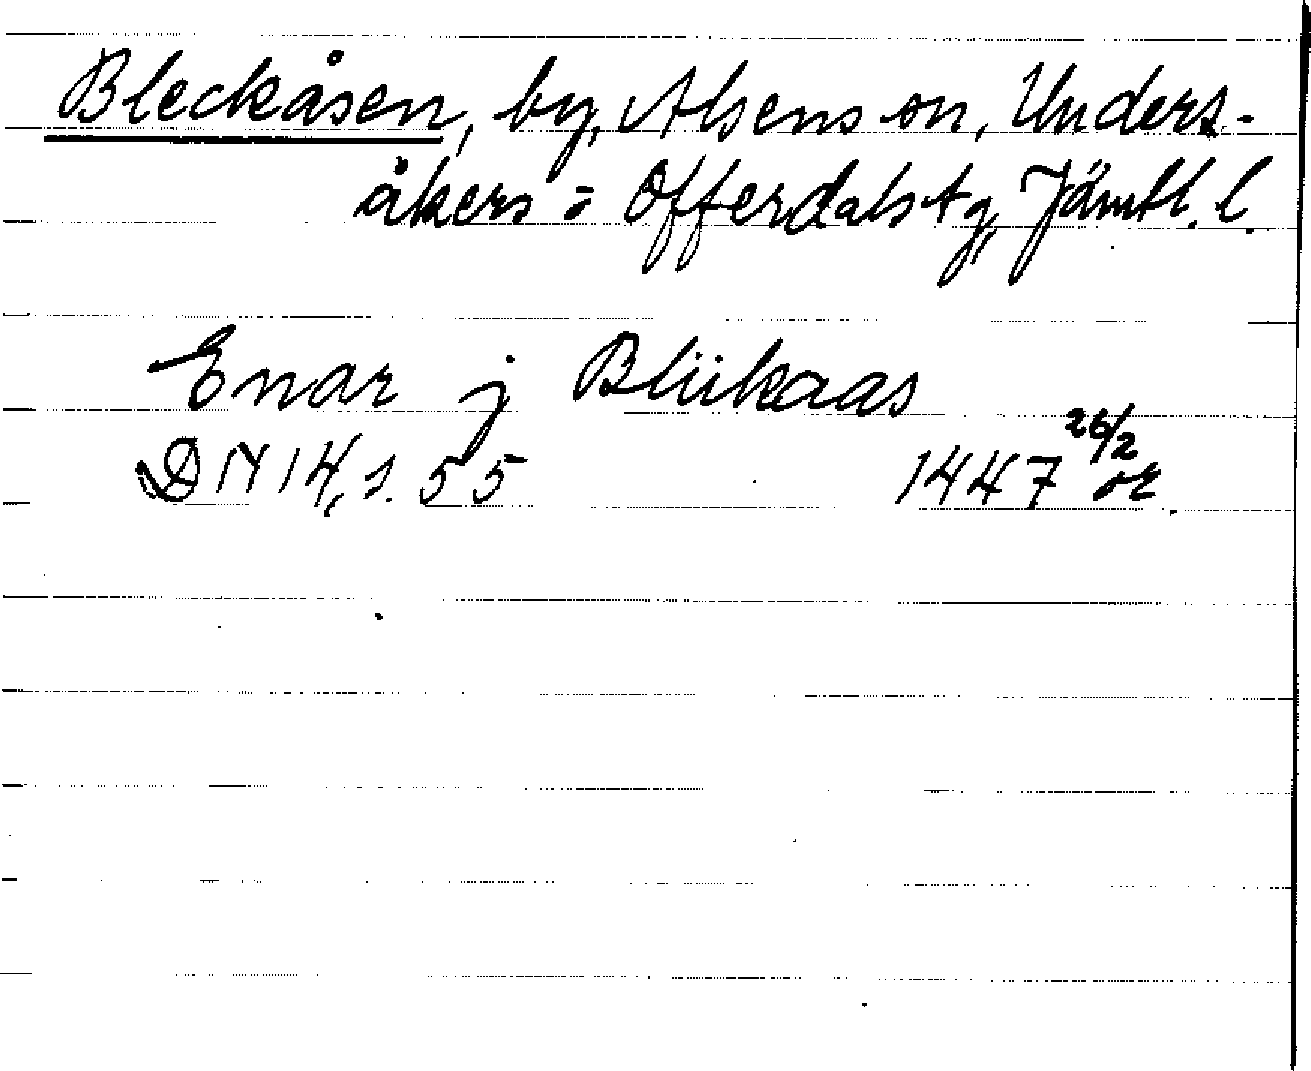 Bleckåsen, by, Alsens sn, Unders-
åkers o Offerdals tg, Jämtl. l.
Enar j Bliikaas
DN 14, s. 55 1447 26/2 or.